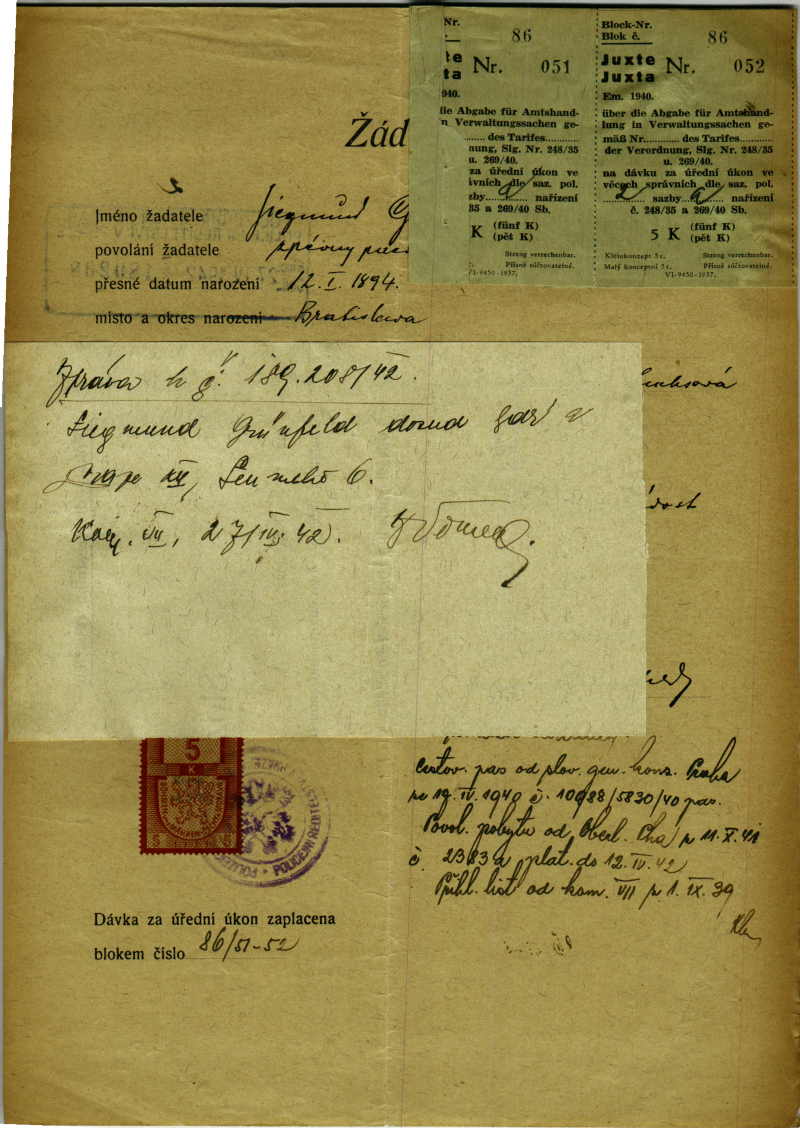 Nr.
86
Nr. 051
940.
die Abgabe für Amtshand-
n Verwaltungssachen ge-
des Tarifes
nung, Slg. Nr. 248/35
u. 269/40.
za úřední úkon ve
ívních dle saz. pol.
zby a nařízení
35 a 269/40 Sb.
K (fünf K)
(pět K)
Streng verrechenbar.
Přísně súčtovatelné.
VI-9450-1937.
Block-Nr.
Blok č. 86
Juxte
Juxta Nr. 052
Em. 1940.
über die Abgabe für Amtshand-
lung in Verwaltungssachen ge-
mäß Nr. des Tarifes
der Verordnung, Slg. Nr. 248/35
u. 269/40.
na dávku za úřední úkon ve
věcech správních dle saz. pol.
2 sazby a nařízení
č. 248/35 a 269/40 Sb.
5 K (fünf K)
(pět K)
Kleinkonzept 5 c. Streng verrechenbar.
Malý konceptní 5 c. Přísně súčtovatelné.
VI-9450-1937.
Žád
Jméno žadatele Siegmund G
povolání žadatele
přesné datum narození 12. I. 1894.
místo a okres narození Bratislava
Zpráva k č. 189.208/42.
Siegmund Grünfeld dosud
6.
VII, 27/IV. 42.
ádost
5
K
Cestov. pas od slov. gen. konz. Praha
ze 19. IV. 1940 č. 10988/5830/40 pas.
Povol. pobytu od Oberl. Pha z 11. X. 41
č. 2383 a plat. do 12. IV. 42
Přihl. list od kom. VII z 1. IX. 39
POLICEJNÍ ŘEDITEL
Dávka za úřední úkon zaplacena
blokem číslo 86/51-52